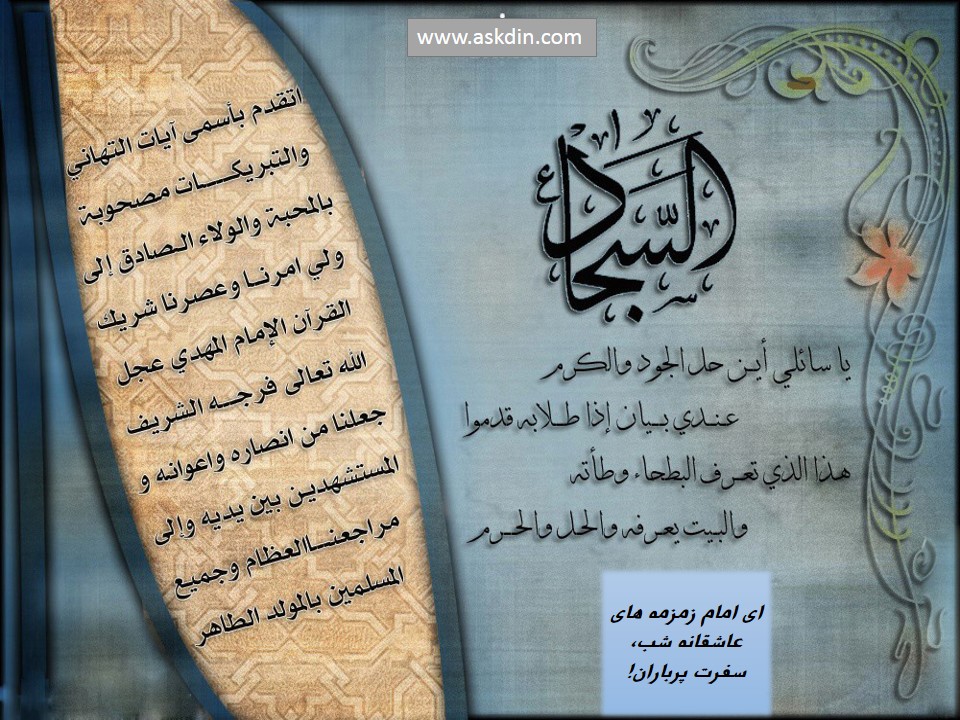 www.askdin.com
السجاد
ع
يا سائلي أين حل الجود والكرم
عندي بيان إذا طلابه قدموا
هذا الذي تعرف البطحاء وطأته
والبيت يعرفه والحل والحرم
ای امام زمزمه های
عاشقانه شب،
سفرت پرباران!
اتقدم بأسمى آيات التهاني
والتبريكات مصحوبة
بالمحبة والولاء الصادق إلى
ولي امرنا وعصرنا شريك
القرآن الإمام المهدي عجل
الله تعالى فرجه الشريف
جعلنا من انصاره واعوانه و
المستشهدين بين يديه وإلى
مراجعنا العظام وجميع
المسلمين بالمولد الطاهر